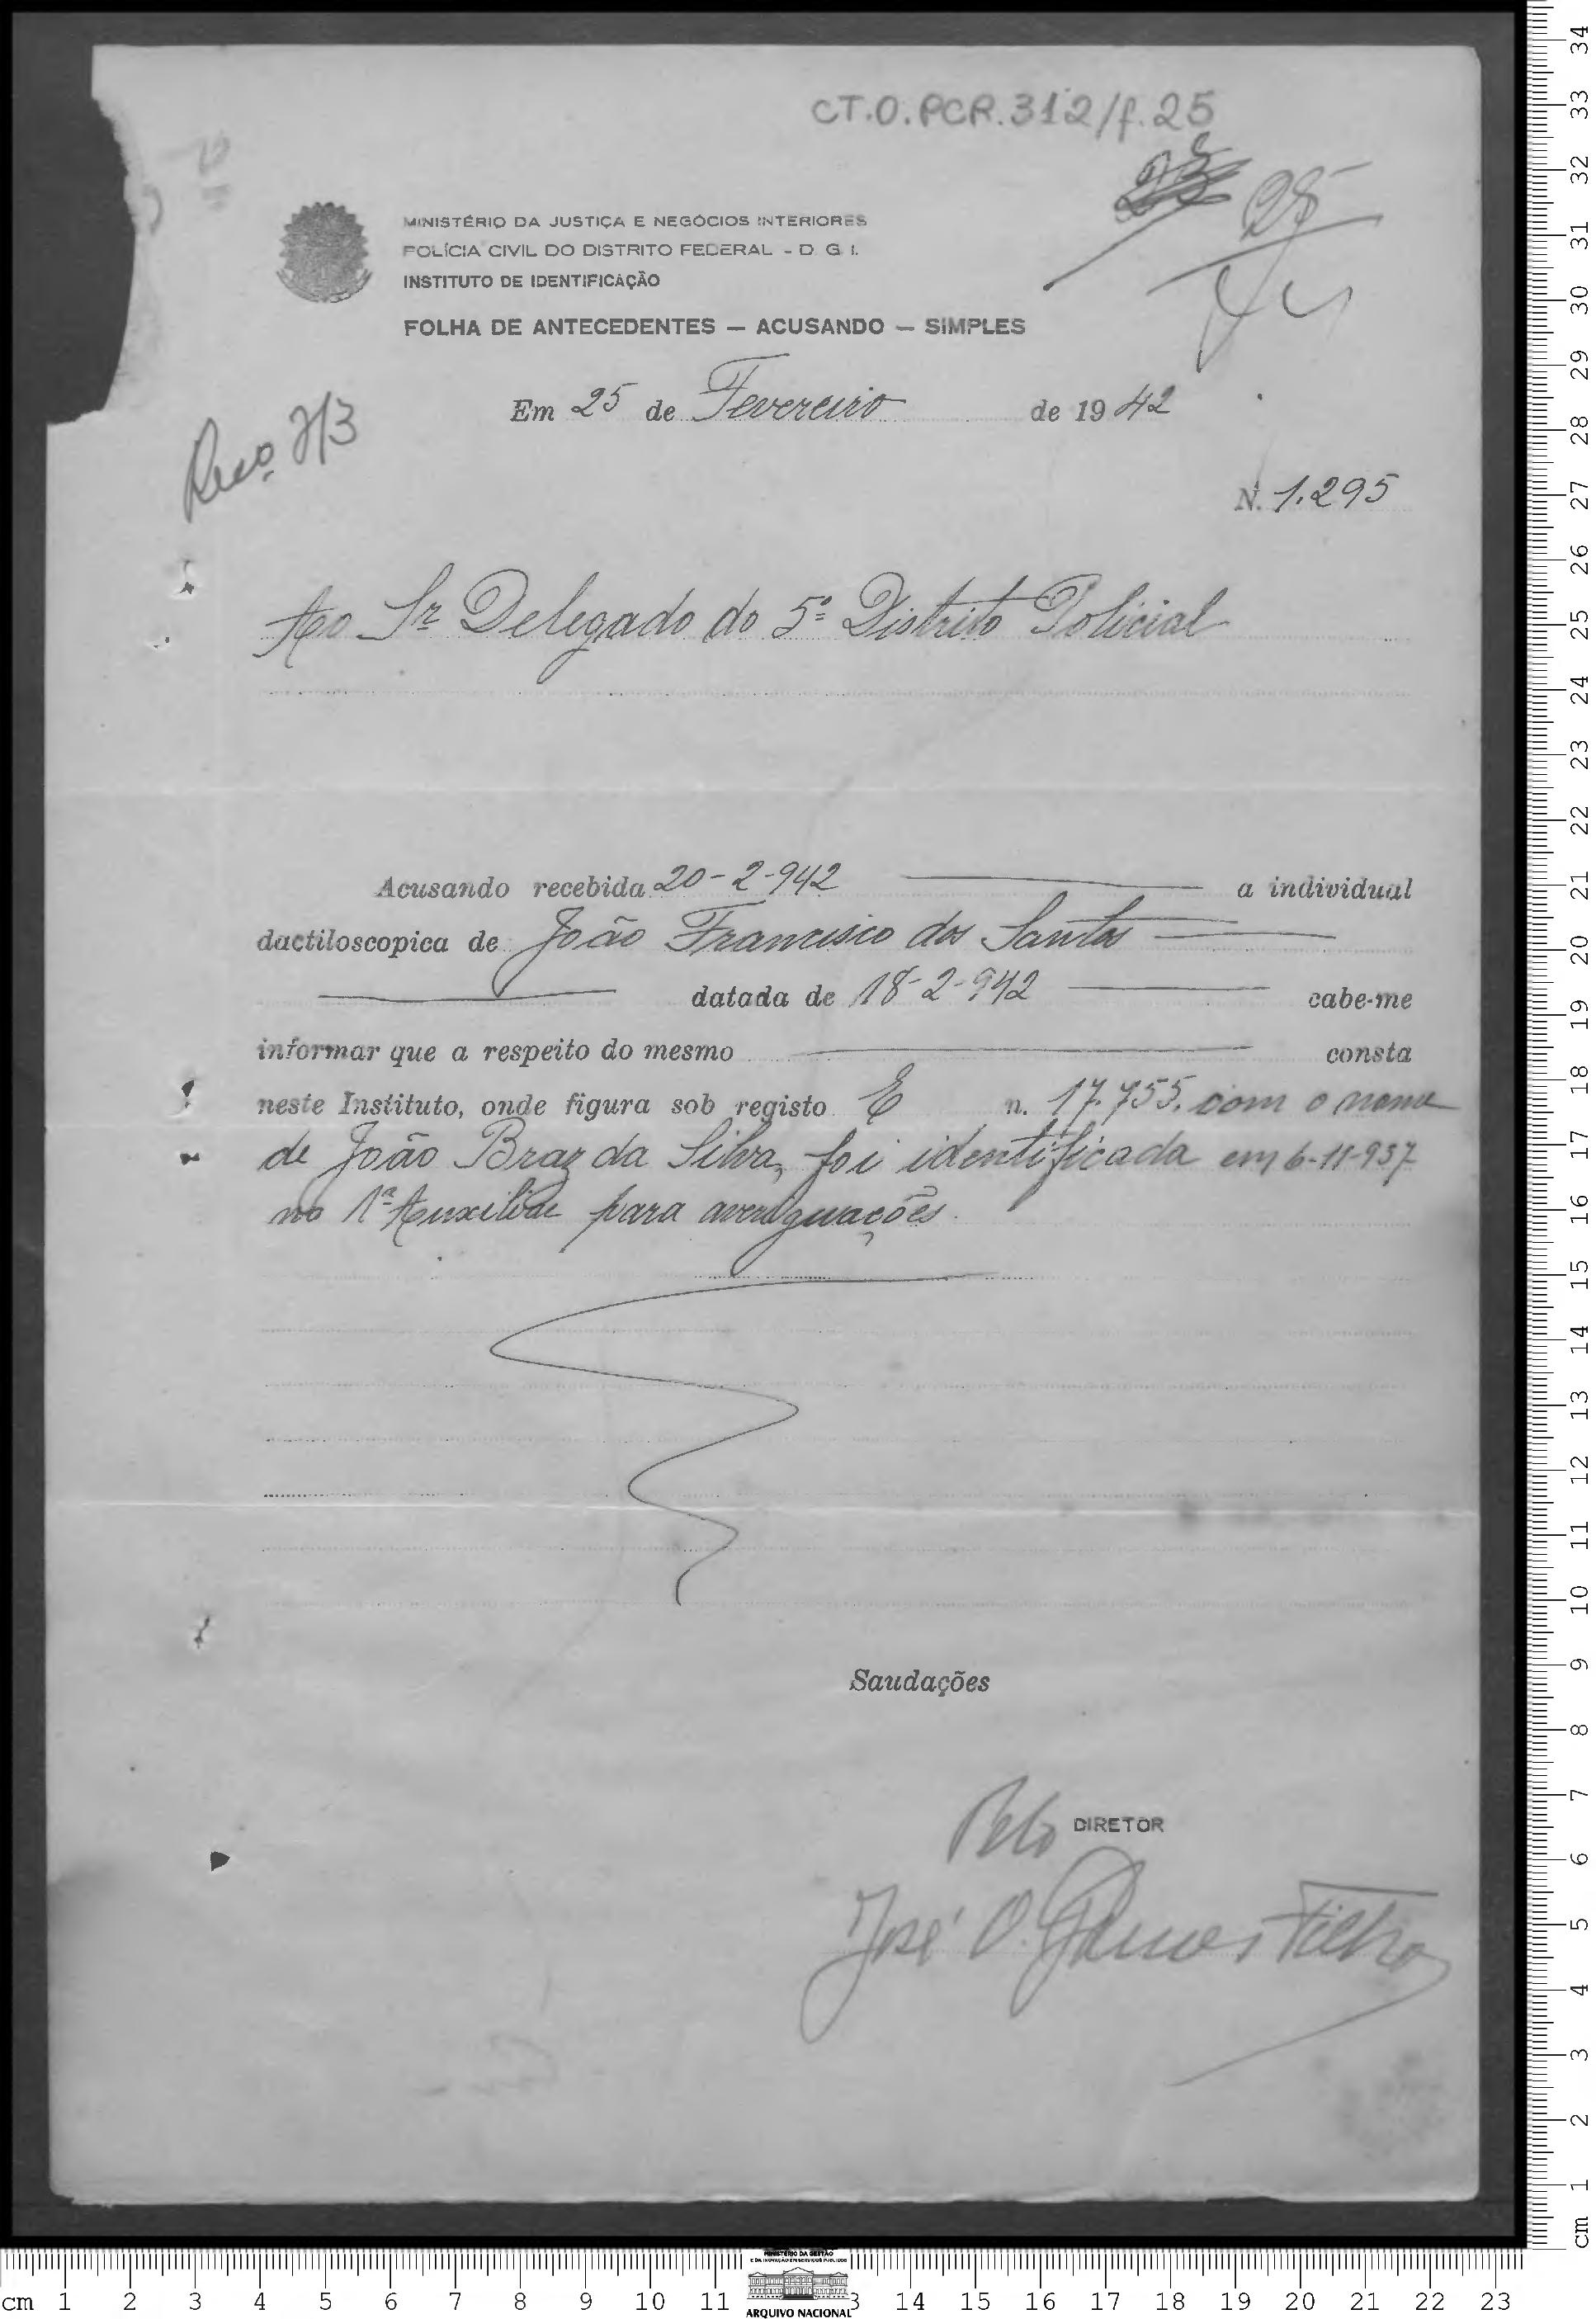 CT.O.PCR.312/f.25
23
25
MINISTÉRIO DA JUSTIÇA E NEGÓCIOS INTERIORES
POLÍCIA CIVIL DO DISTRITO FEDERAL - D. G. I.
INSTITUTO DE IDENTIFICAÇÃO
FOLHA DE ANTECEDENTES — ACUSANDO — SIMPLES
Em 25 de Fevereiro de 1942
N. 1.295
Ao Sr Delegado do 5º Distrito Policial
Acusando recebida 20-2-942 a individual
dactiloscopica de João Francisco dos Santos
datada de 18-2-942 cabe-me
informar que a respeito do mesmo consta
neste Instituto, onde figura sob registo E n. 17.755. com o nome
de João Braz da Silva, foi identificada em 6-11-937
na 1ª Auxiliar para averiguações.
Saudações
Pelo DIRETOR
José O. Ramos Filho
MINISTÉRIO DA GESTÃO
E DA INOVAÇÃO EM SERVIÇOS PÚBLICOS
ARQUIVO NACIONAL
cm 1 2 3 4 5 6 7 8 9 10 11 3 14 15 16 17 18 19 20 21 22 23
34 33 32 31 30 29 28 27 26 25 24 23 22 21 20 19 18 17 16 15 14 13 12 11 10 9 8 7 6 5 4 3 2 1 cm